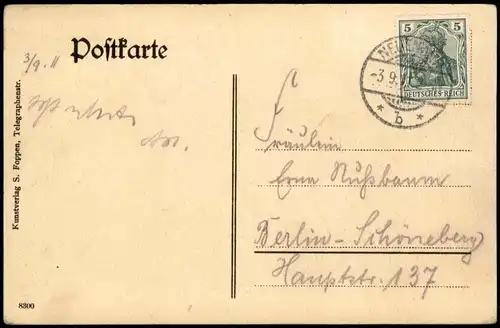 Postkarte
3/9. 11
Kunstverlag S. Foppen, Telegraphenstr.
8300
5 5
DEUTSCHES REICH
-3.9.
* b *
Fräulein
Erna Nußbaum
Berlin-Schöneberg
Hauptstr. 137